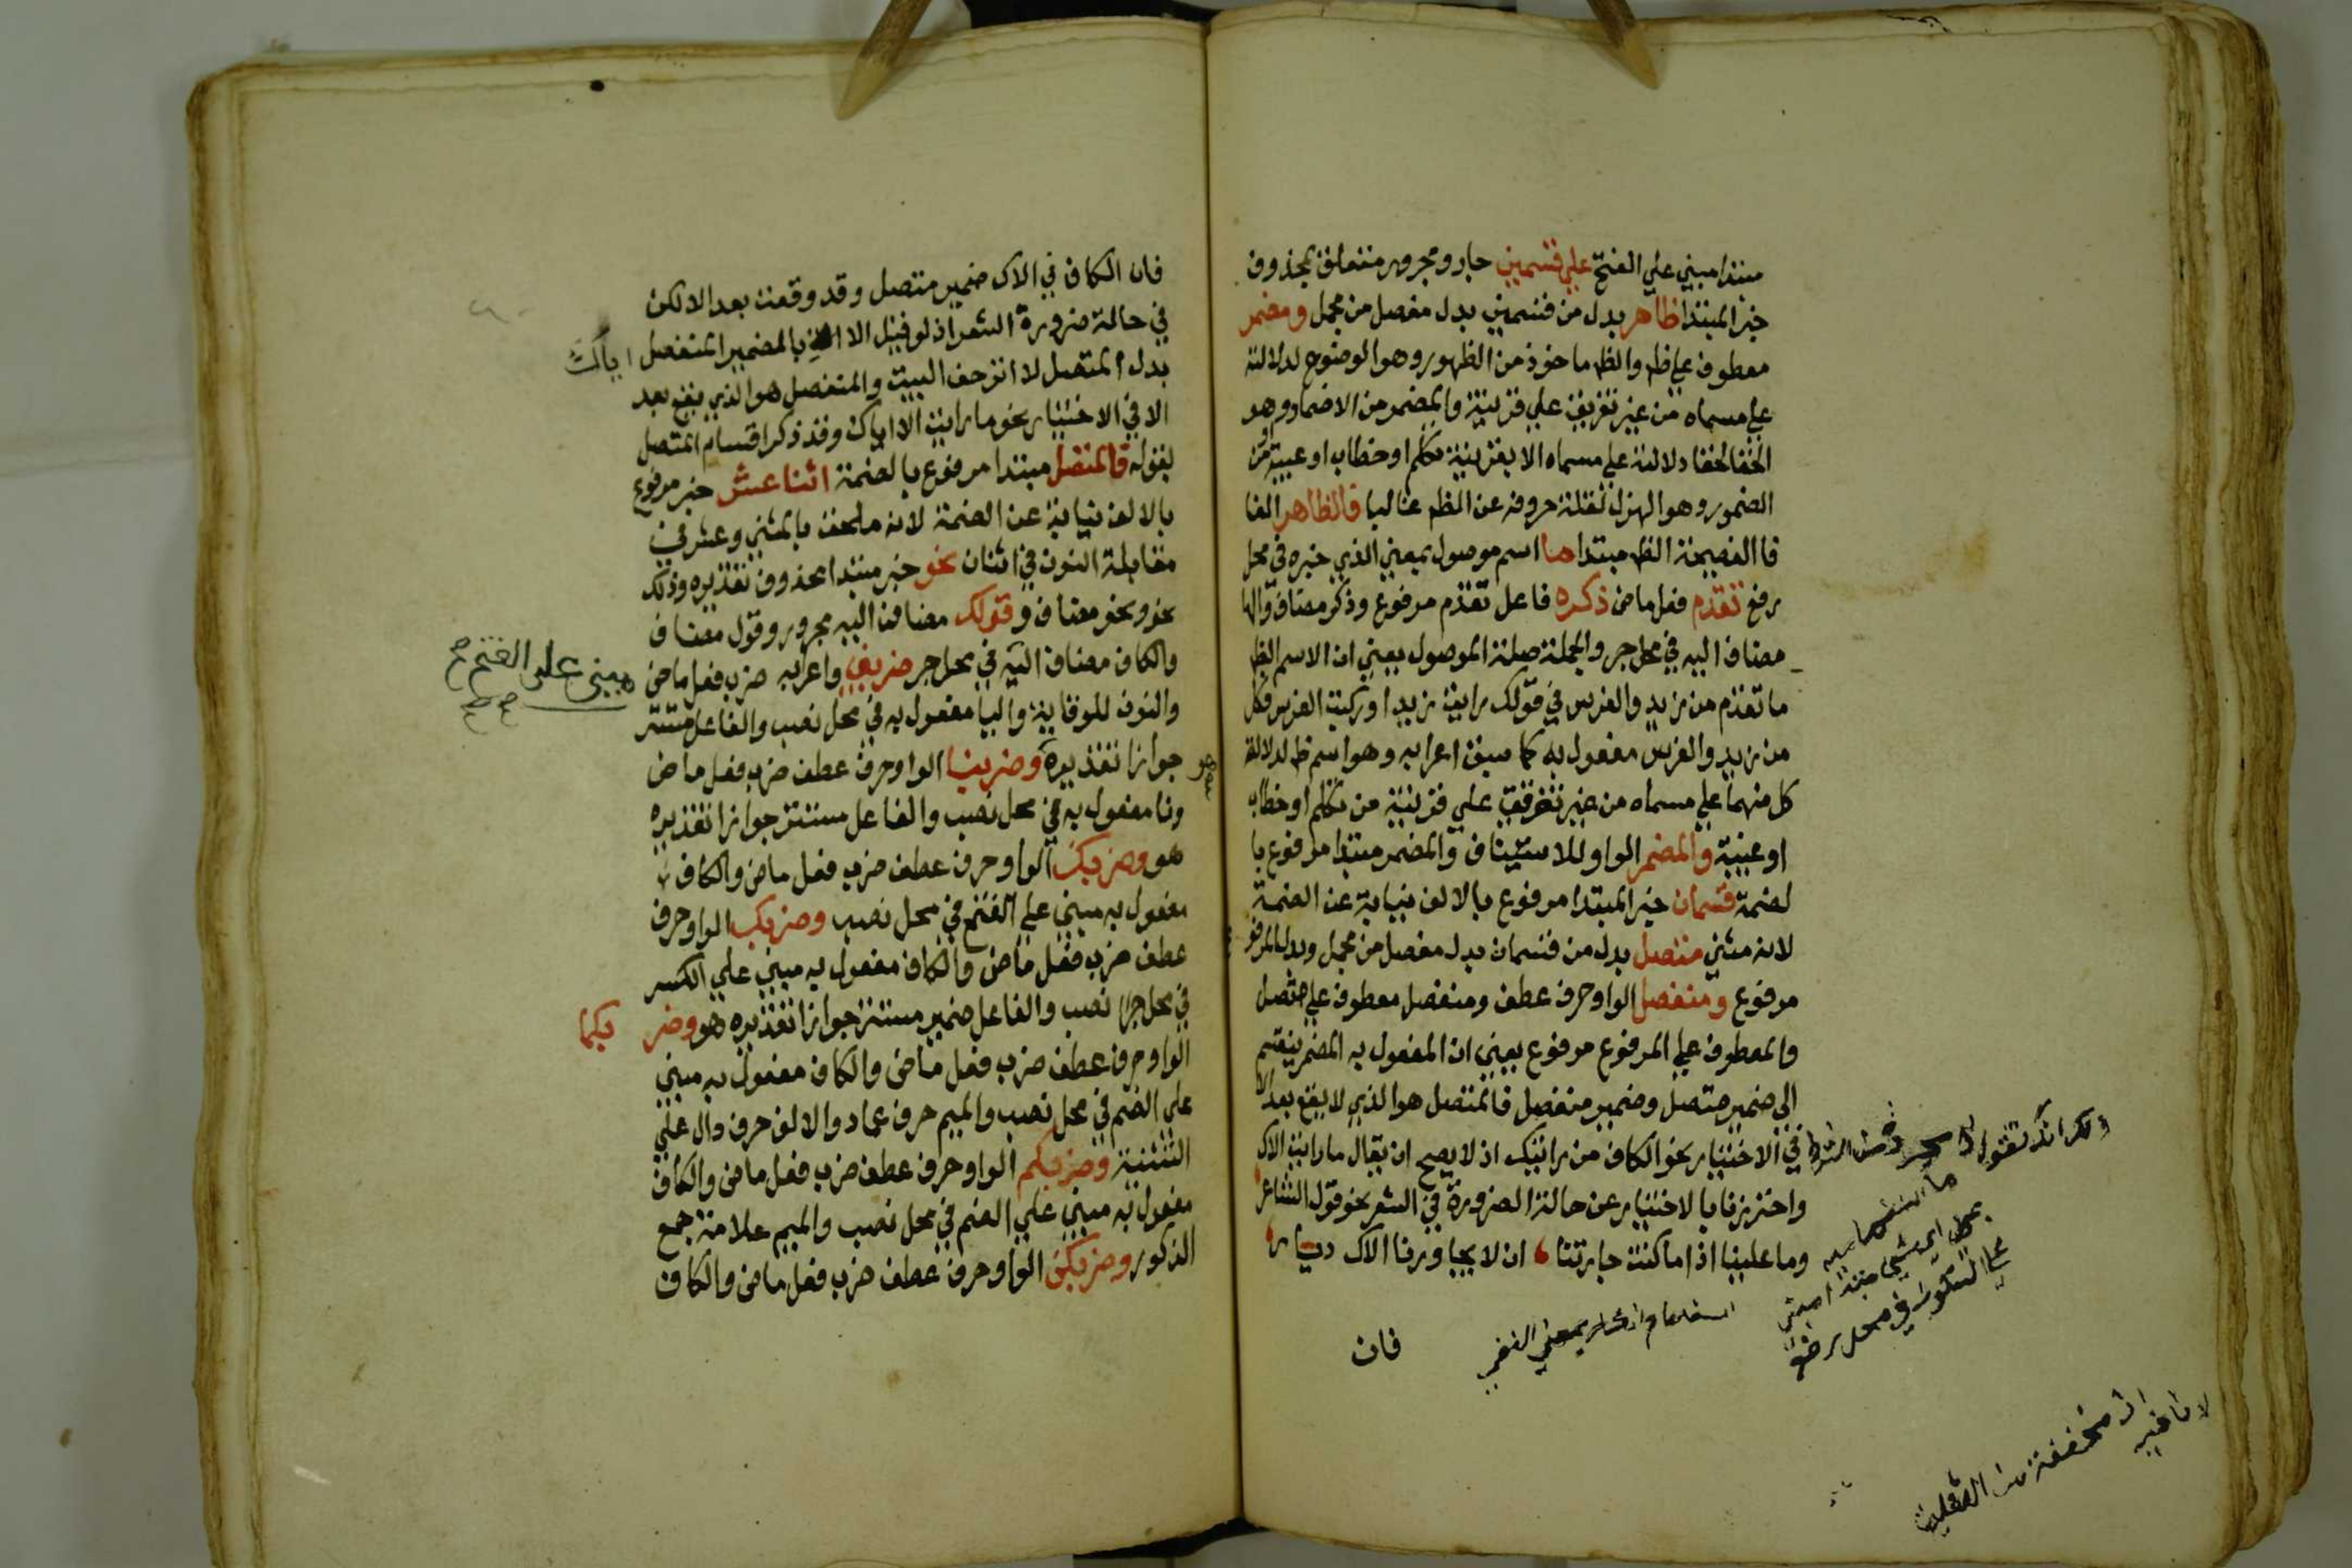 مبتدا مبني علي الفتح علي قسمين جار ومجرور متعلق بمحذوف
خبر المبتدا ظاهر بدل من قسمين بدل مفصل من مجمل ومضمر
معطوف علي ظ والظ ماخوذ من الظهور وهو الوضوح لدلالته
علي مسماه من غير توقف علي قرينة والمضمر من الاضمار وهو
الخفا لخفا دلالته علي مسماه الا بقرينة تكلم او خطاب او غيبة او من
الضمور وهو الهزل لقلة حروفه عن الظ غالبا فالظاهر الفا
فا الفصيحة الظ مبتدا ما اسم موصول بمعني الذي خبره في محل
رفع تقدم فعل ماض ذكره فاعل تقدم مرفوع وذكر مضاف والها
مضاف اليه في محل جر والجملة صلة الموصول يعني ان الاسم الظ
ما تقدم من زيد والفرس في قولك رايت زيد اوركبت الفرس فكل
من زيد والفرس مفعول به كما سبق اعرابه وهو اسم ظ لدلالة
كل منهما علي مسماه من غير توقف علي قرينة من تكلم او خطاب
او غيبة والمضمر الواو للاستيناف والمضمر مبتدا مرفوع با
لضمة قسمان خبر المبتدا مرفوع بالالف نيابة عن الضمة
لانه مثني متصل بدل من قسمان بدل مفصل من مجمل وبدل المرفو
مرفوع ومنفصل الواو حرف عطف ومنفصل معطوف علي متصل
والمعطوف علي المرفوع مرفوع يعني ان المفعول به المضمر ينقسم
الي ضمير متصل وضمير منفصل فالمتصل هو الذي لا يقع بعد الا
في الاختيار نحو الكاف من رايتك اذ لا يصح ان يقال ما رايت الاك
واحترزنا بالاختيار عن حالة الضرورة في الشعر نحو قول الشاعر
وما علينا اذا ما كنت جارتنا ان لا يجاورنا الاك ديار
استفهام انكار بمعني النفي
في محل رفع
ان مخففة من الثقيلة
لا نافية
فان
فان الكاف في الاك ضمير متصل وقد وقعت بعد الا لكن
في حالة ضرورة الشعر اذ لو قيل الا بالضمير المنفصل اياك
بدل المتصل لا انزحف البيت والمنفصل هو الذي يقع بعد
الا في الاختيار نحو ما رايت الا اياك وقد ذكر اقسام المتصل
بقوله فالمتصل مبتدا مرفوع بالضمة اثنا عشر خبر مرفوع
بالالف نيابة عن الضمة لانه ملحق بالمثني وعشر في
مقابلة النون في اثنان نحو خبر مبتدا محذوف تقديره وذلك
نحو ونحو مضاف و قولك مضاف اليه مجرور وقول مضاف
والكاف مضاف اليه في محل جر ضربني واعرابه ضرب فعل ماض
مبني علي الفتح صح
والنون للوقاية واليا مفعول به في محل نصب والفاعل مستتر
جوازا تقديره وضربنا الواو حرف عطف ضرب فعل ماض
ونا مفعول به في محل نصب والفاعل مستتر جوازا تقديره
هو وضربك الواو حرف عطف ضرب فعل ماض والكاف
مفعول به مبني علي الفتح في محل نصب وضربك الواو حرف
عطف ضرب فعل ماض والكاف مفعول به مبني علي الكسر
في محل نصب والفاعل ضمير مستتر جوازا تقديره هو وضر بكما
الواو حرف عطف ضرب فعل ماض والكاف مفعول به مبني
علي الضم في محل نصب والميم حرف عماد والالف حرف دال علي
التثنية وضربكم الواو حرف عطف ضرب فعل ماض والكاف
مفعول به مبني علي الضم في محل نصب والميم علامة جمع
الذكور وضربكن الواو حرف عطف ضرب فعل ماض والكاف